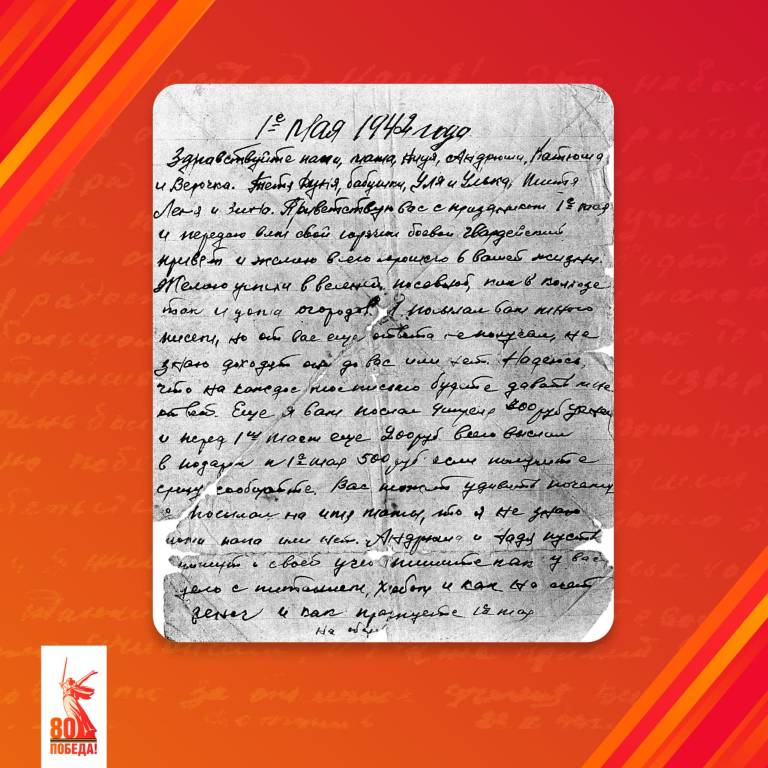 1е Мая 1942 года
Здравствуйте папа, мама, Нюся, Андрюша, Катюша
и Верочка. Тетя Дуня, бабушки, Уля и Улька, Митя
Леня и Зина. Приветствую вас с праздником 1е мая
и передаю вам свой горячий боевой Гвардейский
привет и желаю всего хорошего в вашей жизни.
Желаю успеха в весенней посевной, как в колхозе
так и дома огородов. Я посылал вам много
писем, но от вас еще ответа не получал, не
знаю доходят они до вас или нет. Надеюсь,
что на каждое мое письмо будете давать мне
ответ. Еще я вам послал 300 руб денег
и перед 1ым Мает еще 200 руб всего выслал
в подарок к 1е мая 500 руб если получите
сразу сообщайте. Вас может удивить почему
посылал на имя мамы, то я не знаю
дома папа или нет. Андрюша и Надя пусть
пишут о своей учебе пишите как у вас
дело с питанием, хлебом и как на счет
денег и как празднуете 1е мая
на обор
80
ПОБЕДА!